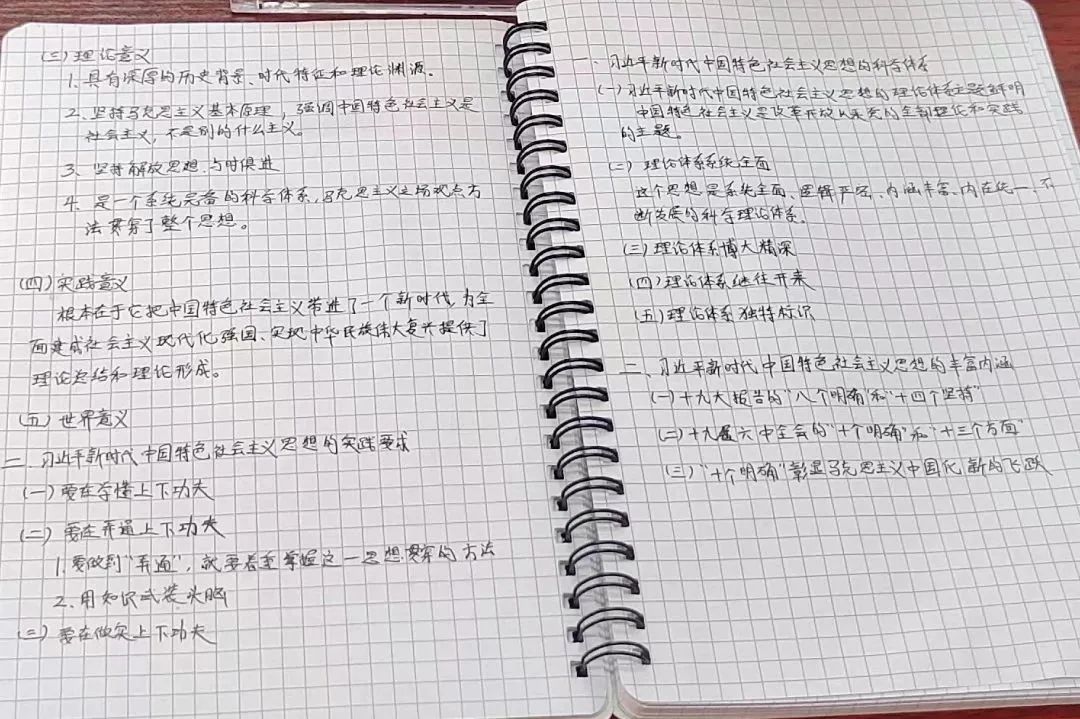 (三)理论意义
1.具有深厚的历史背景、时代特征和理论渊源。
2.坚持马克思主义基本原理,强调中国特色社会主义是
社会主义,不是别的什么主义。
3、坚持解放思想、与时俱进
4.是一个系统完备的科学体系,马克思主义立场观点方
法贯穿了整个思想。
(四)实践意义
根本在于它把中国特色社会主义带进了一个新时代,为全
面建成社会主义现代化强国、实现中华民族伟大复兴提供了
理论总结和理论形成。
(五)世界意义
二、习近平新时代中国特色社会主义思想的实践要求
(一)要在学懂上下功夫
(二)要在弄通上下功夫
1.要做到“弄通”,就要着重掌握这一思想贯穿的方法
2.用知识武装头脑
(三)要在做实上下功夫
一、习近平新时代中国特色社会主义思想的科学体系
(一)习近平新时代中国特色社会主义思想的理论体系主题鲜明
中国特色社会主义是改革开放以来党的全部理论和实践
的主题。
(二)理论体系系统全面
这个思想是系统全面、逻辑严密、内涵丰富、内在统一、不
断发展的科学理论体系。
(三)理论体系博大精深
(四)理论体系继往开来
(五)理论体系独特标识
二、习近平新时代中国特色社会主义思想的丰富内涵
(一)十九大报告的“八个明确”和“十四个坚持”
(二)十九届六中全会的“十个明确”和“十三个方面”
(三)“十个明确”彰显马克思主义中国化新的飞跃